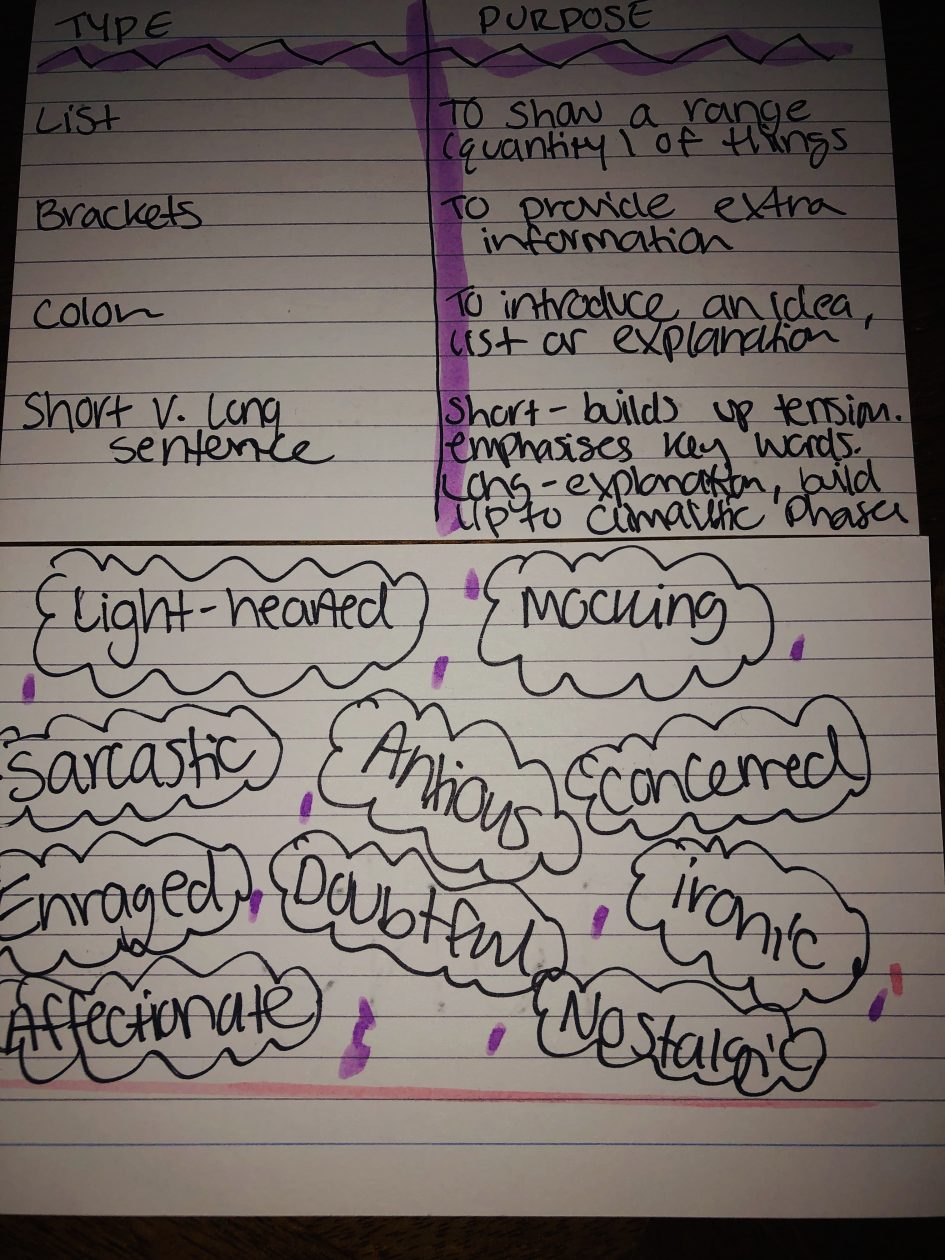 TYPE PURPOSE
List To show a range
(quantity) of things
Brackets To provide extra
information
Colon To introduce an idea,
list or explanation
Short v. long Short - builds up tension.
sentence emphasises key words.
Long - explanation, build
up to climactic phase
Light-hearted Mocking
Sarcastic Anxious Concerned
Enraged Doubtful ironic
Affectionate Nostalgic